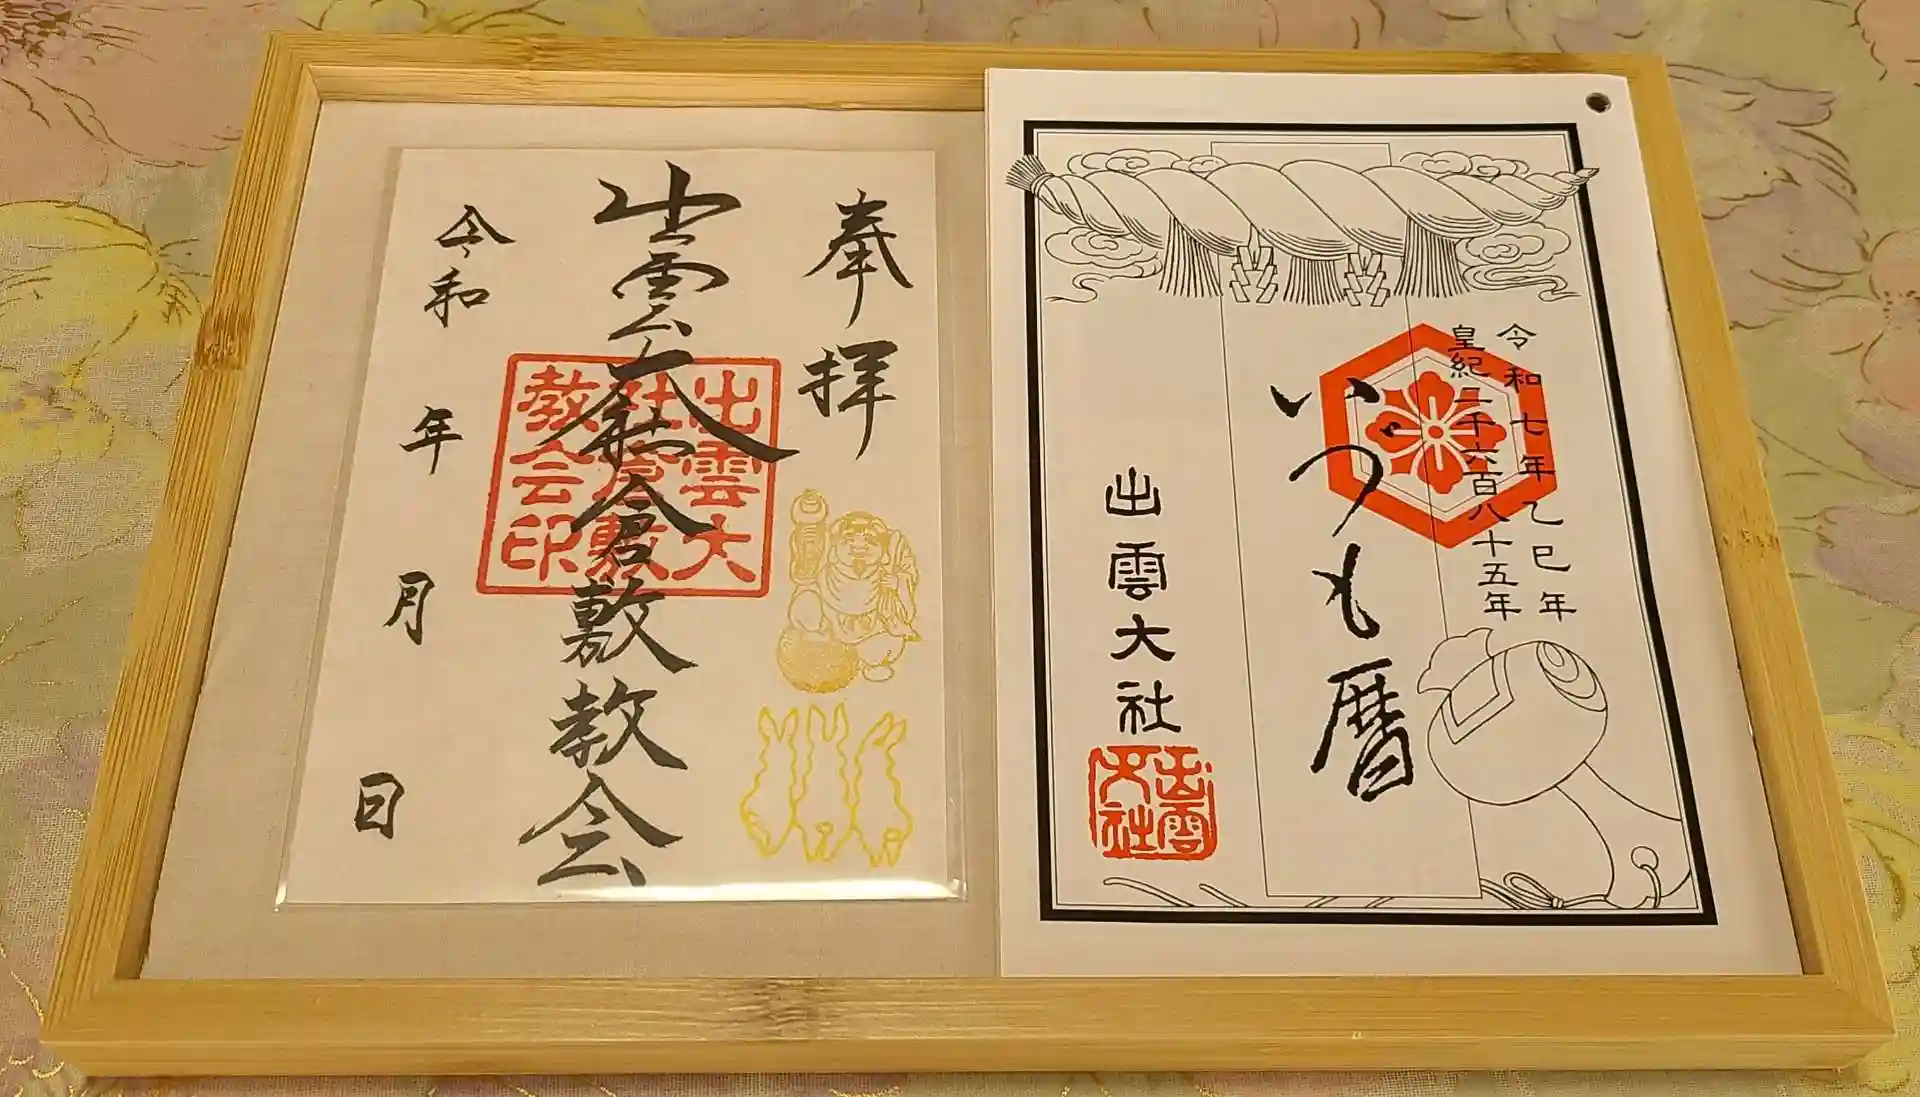 奉拝
出雲大社倉敷教会
出雲大
社倉敷
教会印
令和 年 月 日
令和七年乙巳年
皇紀二千六百八十五年
いづも暦
出雲大社
出雲
大社